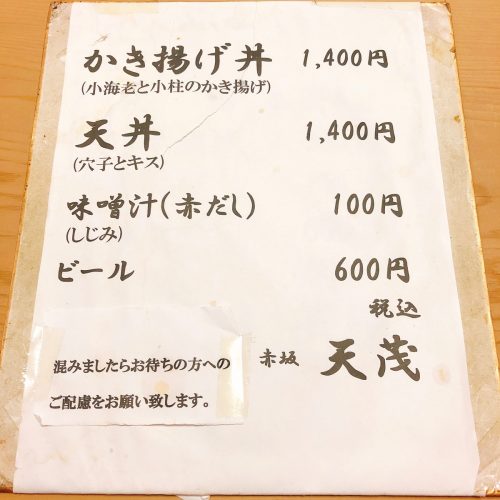 かき揚げ丼 1,400円
(小海老と小柱のかき揚げ)
天丼 1,400円
(穴子とキス)
味噌汁(赤だし) 100円
(しじみ)
ビール 600円
税込
赤坂 天茂
混みましたらお待ちの方への
ご配慮をお願い致します。